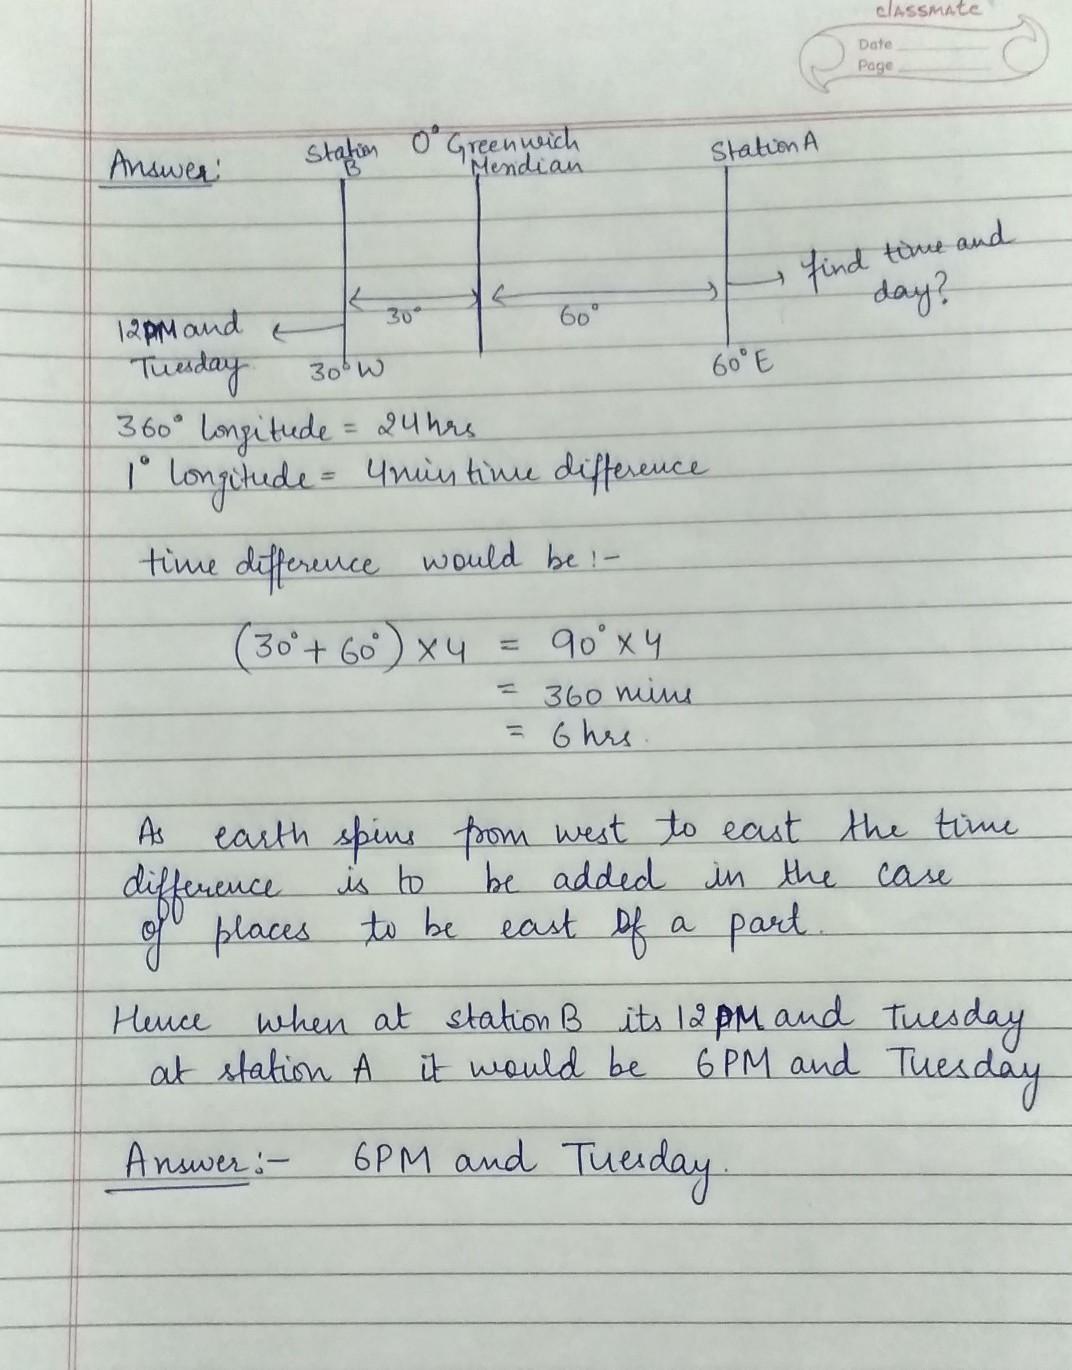 classmate
Date
Page
Answer:
Station B
0° Greenwich Meridian
Station A
30°
60°
find time and day?
12PM and Tuesday
30°W
60°E
360° longitude = 24hrs
1° longitude = 4min time difference
time difference would be :-
(30° + 60°) × 4 = 90° × 4
= 360 mins
= 6 hrs.
As earth spins from west to east the time
difference is to be added in the case
of places to be east of a part.
Hence when at station B its 12PM and Tuesday
at station A it would be 6PM and Tuesday
Answer:- 6PM and Tuesday.